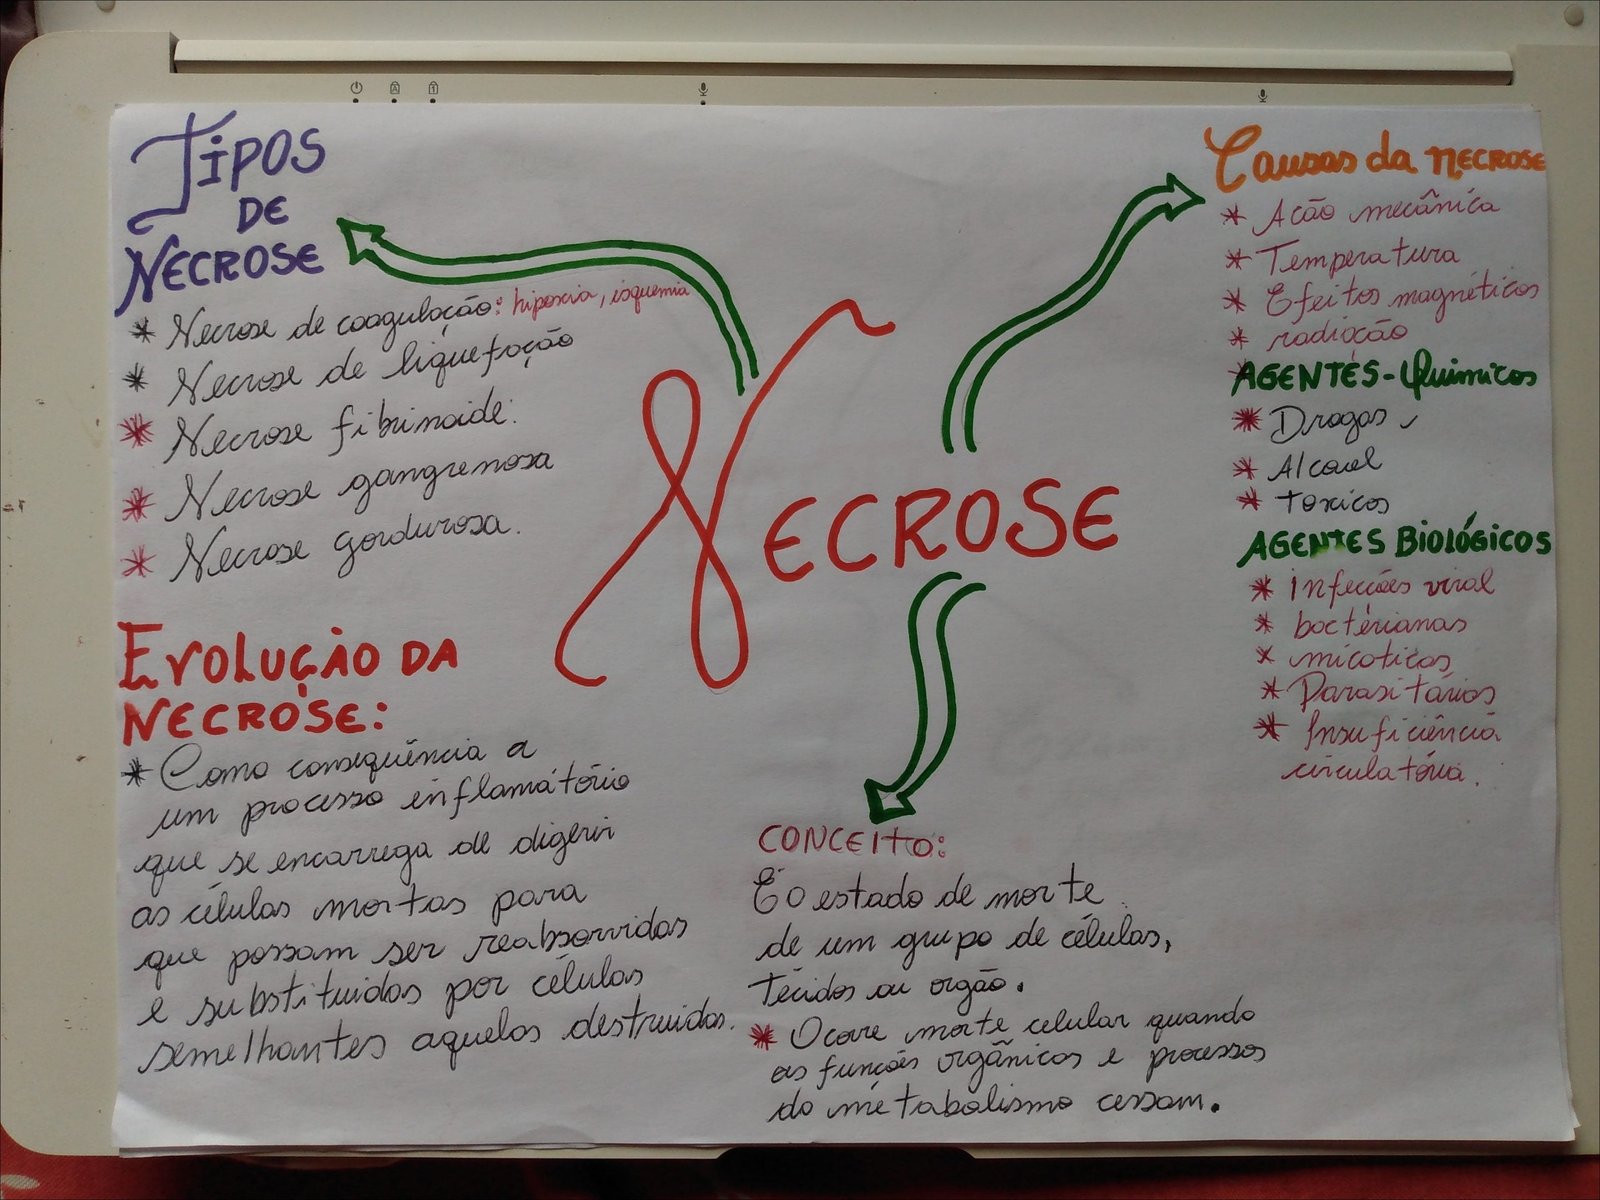 TIPOS
DE
NECROSE
* Necrose de coagulação: hipoxia, isquemia
* Necrose de liquefação
* Necrose fibrinoide.
* Necrose gangrenosa
* Necrose gordurosa.
EVOLUÇÃO DA
NECROSE:
* Como consequência a
um processo inflamátório
que se encarrega de digerir
as células mortas para
que possam ser reabsorvidas
e substituidas por células
semelhantes aquelas destruidas.
NECROSE
CONCEITO:
É o estado de morte
de um grupo de células,
técidos ou orgão.
* Ocore morte celular quando
as funções orgânicas e processos
do métabolismo cessam.
Causas da NECROSE
* Ação mecânica
* Temperatura
* Efeitos magnéticos
* radiação
* AGENTES - Químicos
* Drogas
* Alcool
* toxicos
AGENTES BIOLÓGICOS
* infecções viral
* bactérianas
* micoticas
* Parasitárias
* Insuficiência
circulatória.